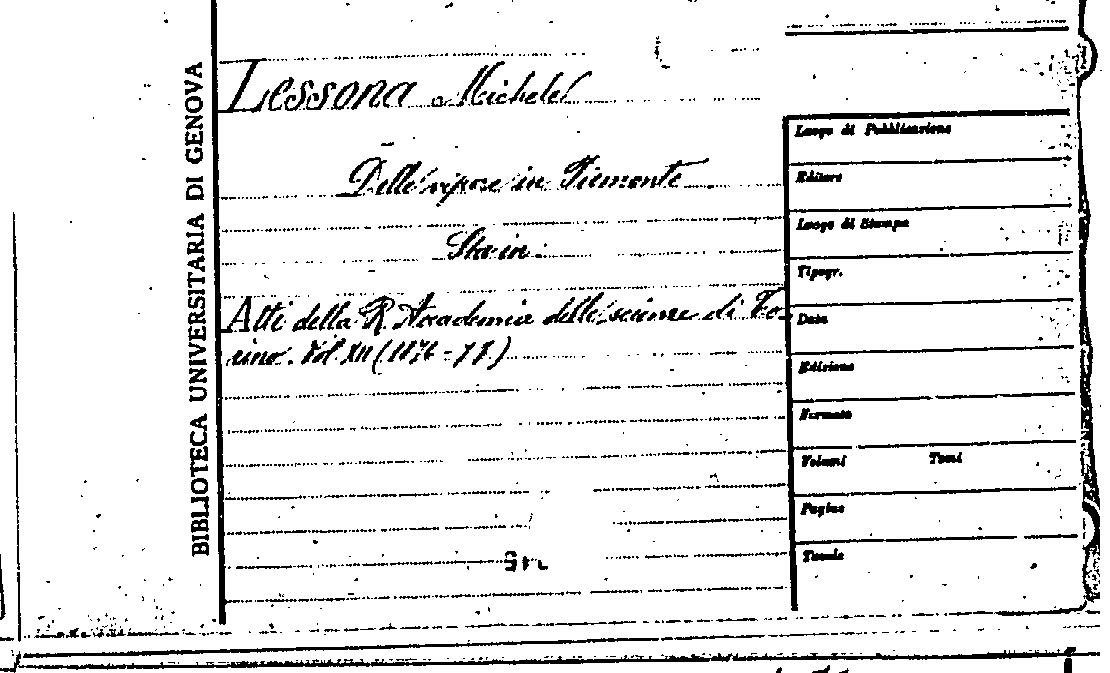 BIBLIOTECA UNIVERSITARIA DI GENOVA
Lessona Michele
Delle vipere in Piemonte
Sta in:
Atti della R. Accademia delle scienze di To-
rino. Vol. XII (1876-77)
Luogo di Pubblicazione
Editore
Luogo di Stampa
Tipogr.
Data
Edizione
Formato
Volumi Tomi
Pagine
Tavole